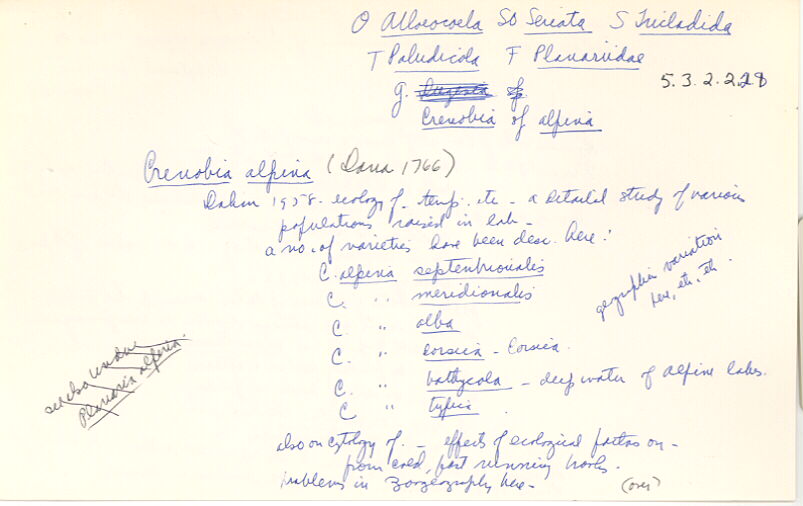 O Alloeocoela SO Seriata S Tricladida
T Paludicola F Planariidae
5.3.2.228
g. Dugesia sp.
Crenobia of alpina
Crenobia alpina (Dana 1766)
Dahm 1958 - ecology of - temp. etc - a detailed study of various
populations raised in lab -
a no. of varieties have been desc. here:
C. alpina septentrionalis
C. " meridionalis
C " alba
C. " corsica - Corsica.
C. " bathycola - deep water of alpine lakes.
C " typica
geographic variation
here, etc, etc.
see also under
Planaria alpina.
also on cytology of. - effects of ecological factors on -
from cold, fast running brooks.
problems in zoogeography here -
(over)